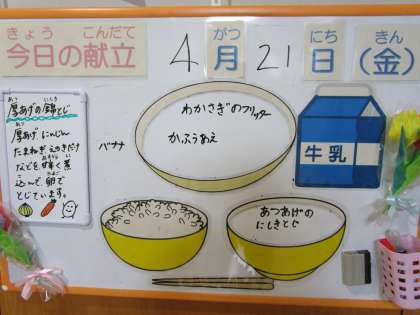 きょう こんだて
今日の献立
4 がつ 月 21 にち 日 きん (金)
あつ にしき
厚あげの錦とじ
あつ
厚あげ にんじん
たまねぎ えのきだけ
などを甘く煮
込んで、卵で
とじています。
バナナ
わかさぎのフリッター
かふうあえ
牛乳
あつあげの
にしきとじ